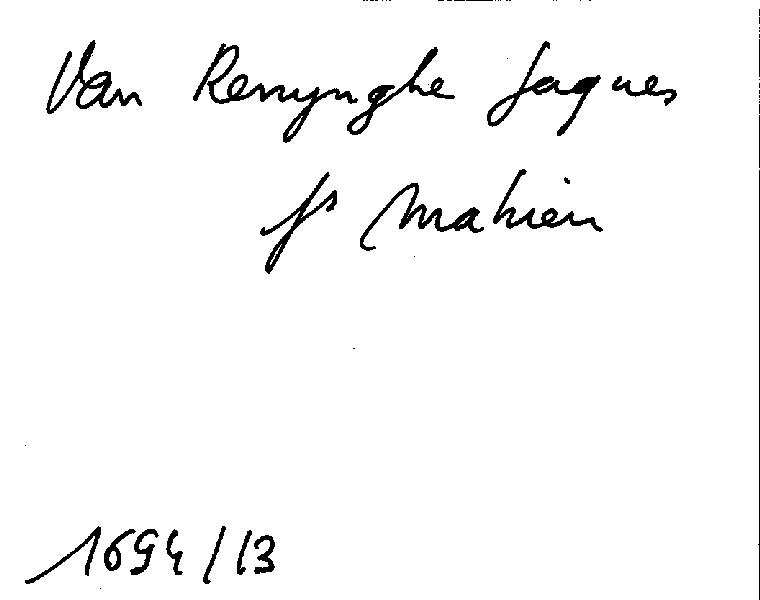 Van Renynghe Jaques
fs Mahieu
1694/13